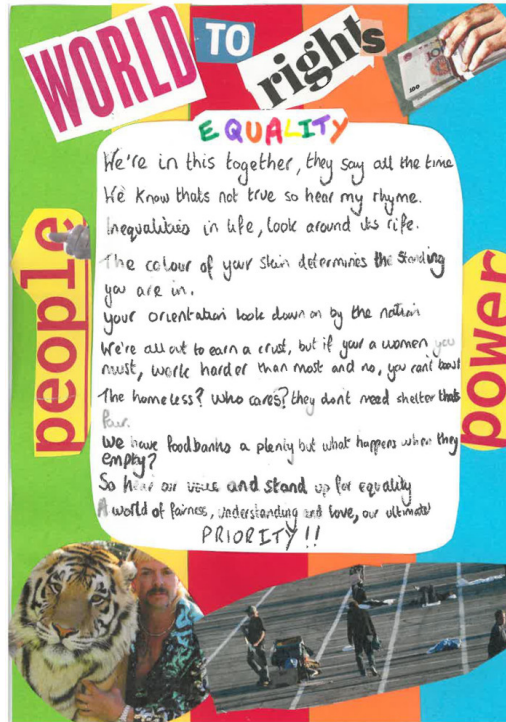 WORLD TO rights
100
EQUALITY
We're in this together, they say all the time
We Know thats not true so hear my rhyme.
Inequalities in life, look around its rife.
The colour of your skin determines the standing
you are in.
your orientation look down on by the nation
We're all out to earn a crust, but if your a women you
must, work harder than most and no, you cant boast
The homeless? who cares? they dont need shelter thats
fair.
We have foodbanks a plenty but what happens when they
empty?
So hear our voice and stand up for equality
A world of fairness, understanding and love, our ultimate
PRIORITY!!
people
power